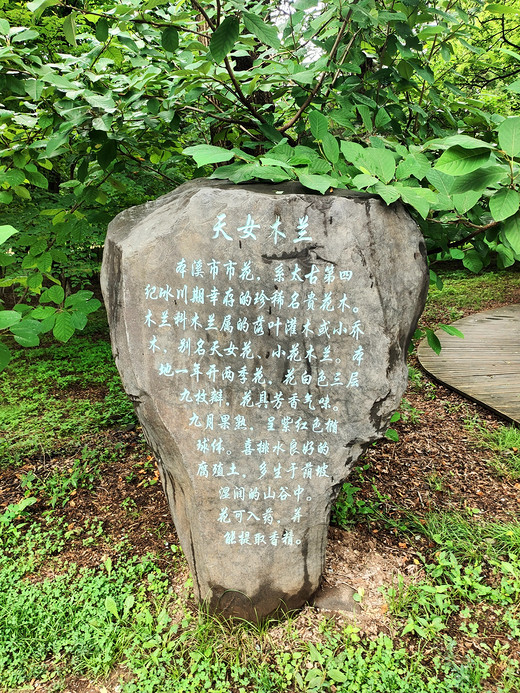 天女木兰
本溪市市花，系太古第四
纪冰川期幸存的珍稀名贵花木。
木兰科木兰属的落叶灌木或小乔
木，别名天女花、小花木兰。本
地一年开两季花，花白色三层
九枚瓣，花具芳香气味。
九月果熟，呈紫红色椭
球体。喜排水良好的
腐殖土，多生于荫坡
湿润的山谷中。
花可入药，并
能提取香精。